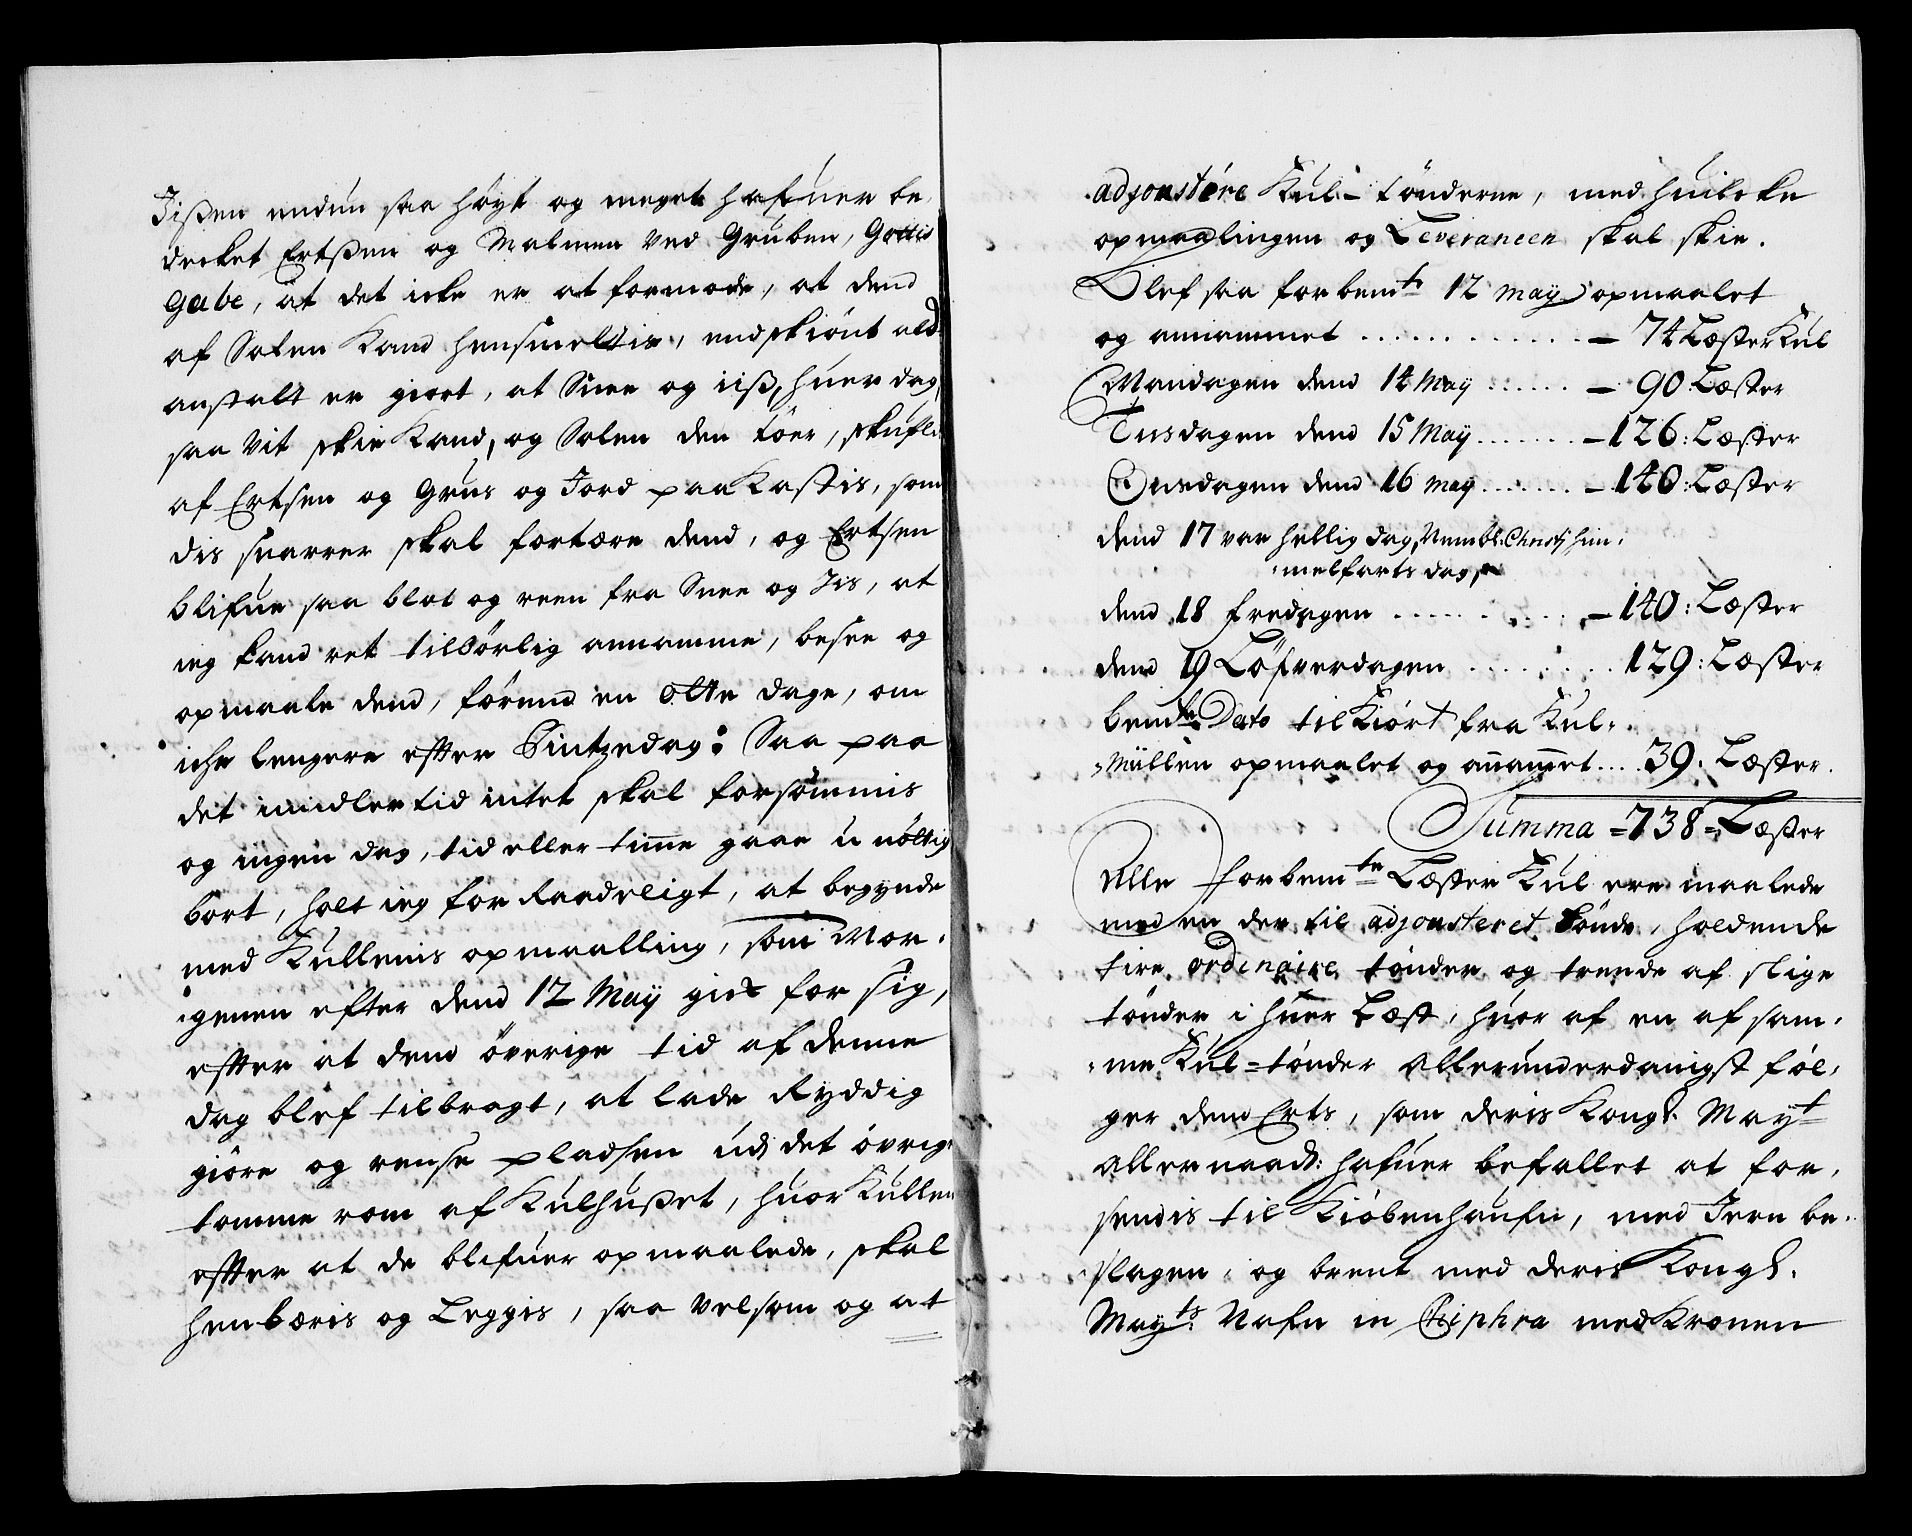 Jißen endnu saa høyt og meget hafuer be,
decket Ertßen og Malmen ved Gruben, Gottis
gabe, at det icke er at formode, at dend
af Solen Kand hensmeltis, endskiönt ald
anstalt er giort, at Snee og iiß, huer dag,
saa vit skie Kand, og Solen den töer, skufl
af Ertsen og Grus og Jord paa Kastis, som
dis snarrer skal fortære dend, og Ertsen
blifue saa blot og reen fra Snee og Jis, at
ieg kand ret tilbörlig annamme, besee og
opmaale dend, förend en otte dage, om
iche lengere efter Pintzedag: Saa paa
det imidlertid intet skal forsömmis
og ingen dag, tid eller time gaae u nöttig
bort, holt ieg for Raadeligt, at begynde
med Kullenis opmaalling, som Mor,
,genen efter dend 12 May gick for sig,
efter at dend överige tid af denne
dag blef tilbragt, at lade Ryddig
giöre og rense pladsen ud det övrig
tomme rom af Kulhußet, huor Kullen
efter at de blifuer opmaalede, skal
henbæris og Leggis, saa velsom og at
adjoustére Kul-tönderne, med huilcke
opmaalingen og Leverancen skal skie.
Blef saa forbemte 12 may opmaalet
og annammet ............ – 74 Læster Kul
Mandagen dend 14 May ...... – 90: Læster
Tiisdagen dend 15 May ....... – 126: Læster
Onsdagen dend 16 may ....... – 140: Læster
dend 17 var hellig dag, Nembl. Christj him,
,melfarts dag,
dend 18 fredagen ............ – 140: Læster
dend 19 Löfverdagen ......... 129: Læster
bemte Dato til Kiört fra Kul,
,Müllen opmaalet og anamet .... 39. Læster.
Summa = 738 = Læster
Alle forbemte Læster Kul ere maalede
med en der til adjousteret Tönde, holdende
fire ordinaire tönder og trende af slige
tönder i huer Læst, huor af en af sam,
,me Kul=tönder allerunderdanigst föl,
ger dend Erts, som deris Kongl. Mayt
allernaadt: hafuer befallet at for,
sendis til Kiöbenhaufn, med Jern be,
,slagen, og brent med deris Kongl.
Mayts. Nafn in Ciphra med Kronen